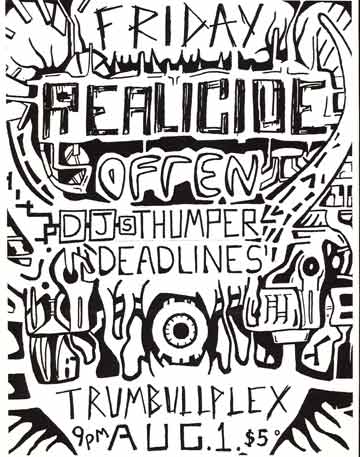 FRIDAY
REALICIDE
DJs THUMPER
DEADLINES
TRUMBULLPLEX
9PM AUG. 1. $5